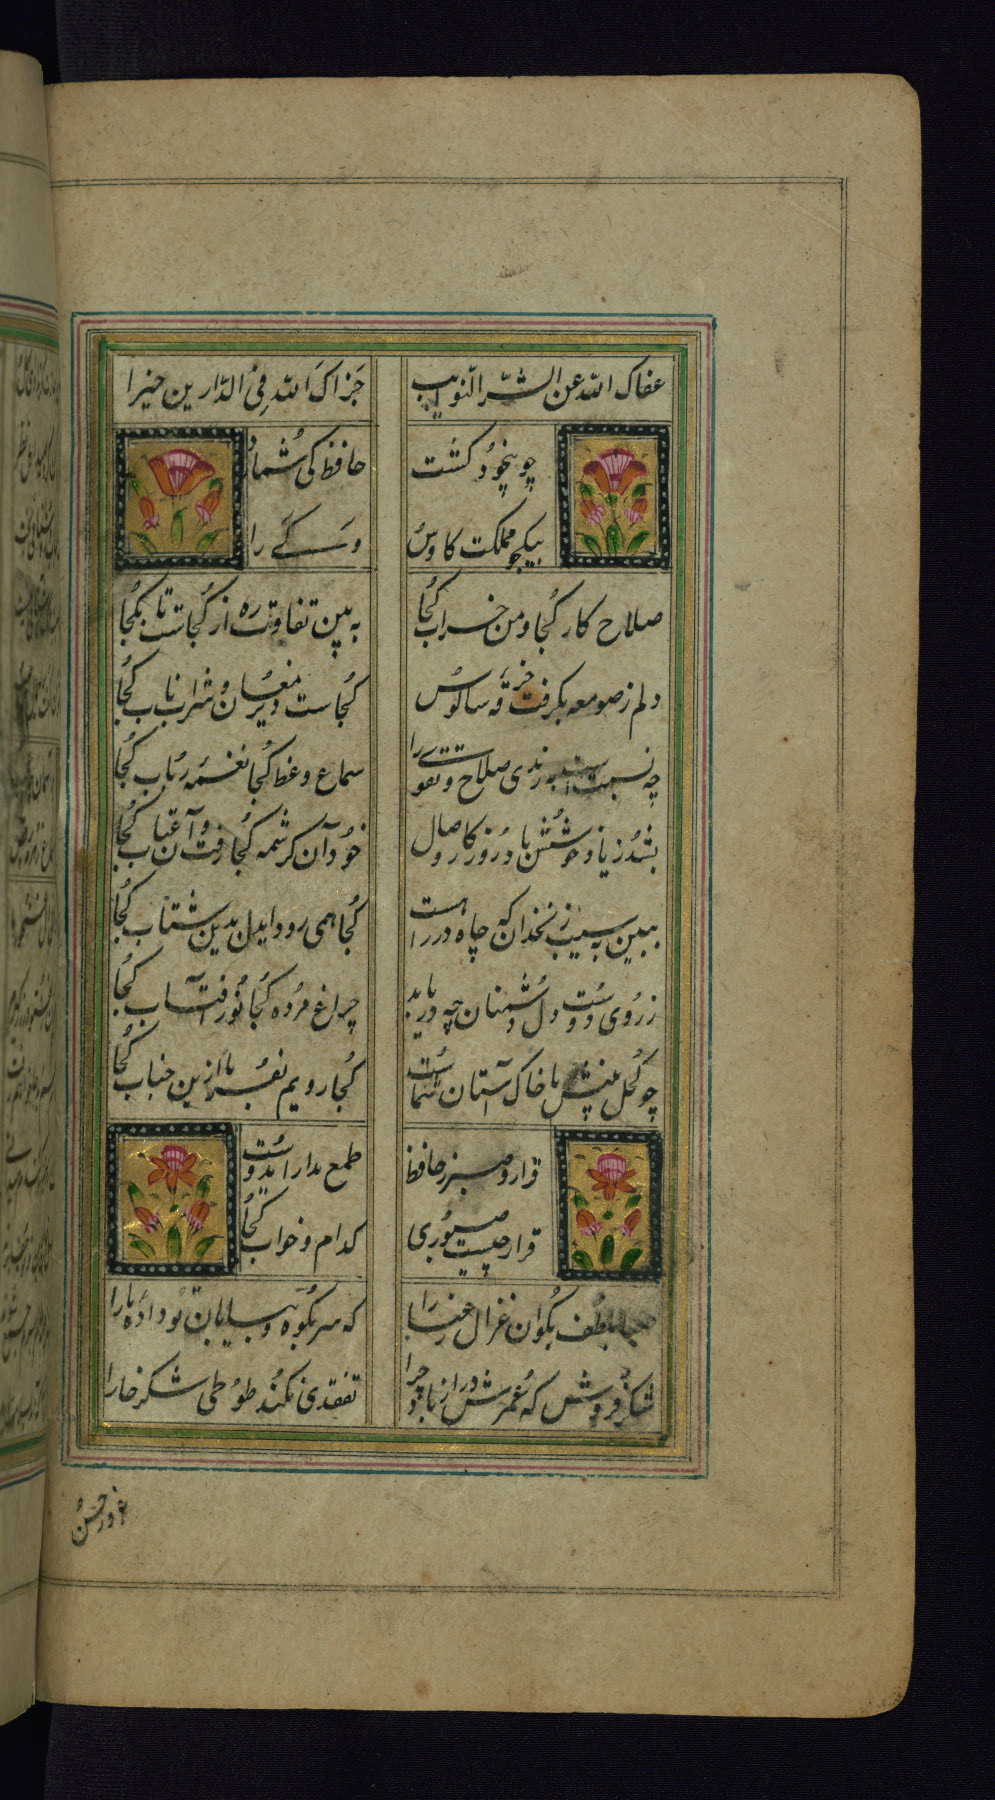 عفاک الله عن الشر النوایب
جزاک الله فی الدارین خیرا
چو بیخود کشت حافظ کی شمارد
بیکجو مملکت کاوس و کے را
صلاح کار کجا و من خراب کجا
به بین تفاوت ره از کجاست تا بکجا
دلم ز صومعه بکرفت و خرقه سالوس
کجاست دیر مغان و شراب ناب کجا
چه نسبت است برندی صلاح و تقوی را
سماع وعظ کجا نغمه رباب کجا
بشد ز یاد خوشش یاد روزکار وصال
خود آن کرشمه کجا رفت و آن عتاب کجا
ببین به سیب زنخدان که چاه در راهست
کجا همی روی ایدل بدین شتاب کجا
ز روی دوست دل دشمنان چه دریابد
چراغ مرده کجا نور آفتاب کجا
چو کحل بینش ما خاک آستان شماست
کجا رویم بفرما ازین جناب کجا
قرار و صبر ز حافظ طمع مدار ایدوست
قرار چیست صبوری کدام و خواب کجا
صبا بلطف بکو آن غزال رعنا را
که سر بکوه و بیابان تو داده ما را
شکر فروش که عمرش دراز باد چرا
تفقدی نکند طوطی شکرخا را
غرور حسن